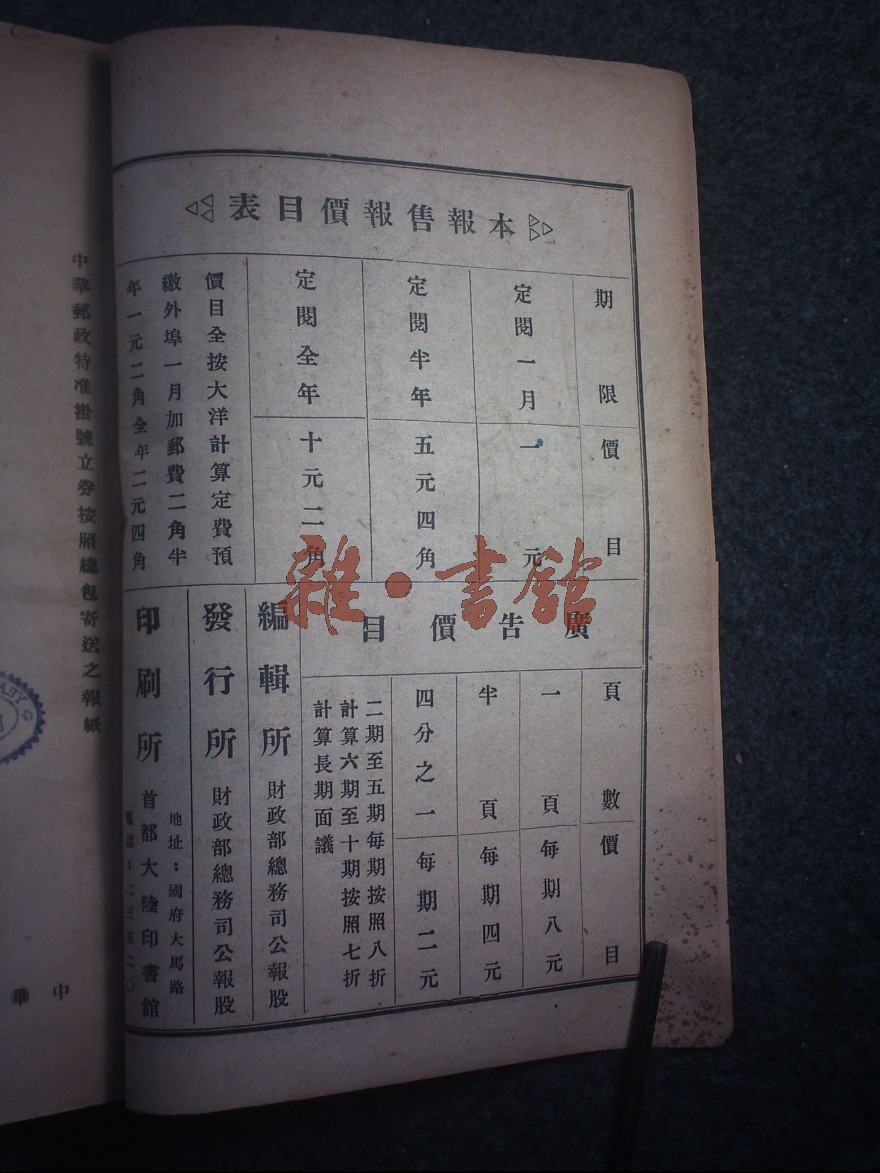 本報售報價目表
期限 價目
定閱一月 一元
定閱半年 五元四角
定閱全年 十元二角
價目全按大洋計算定費預
繳外埠一月加郵費二角半
年一元二角全年二元四角
廣告價目
頁數 價目
一頁 每期八元
半頁 每期四元
四分之一 每期二元
二期至五期每期按照八折
計算六期至十期按照七折
計算長期面議
編輯所 財政部總務司公報股
發行所 財政部總務司公報股
印刷所 首都大陸印書館
地址：國府大馬路
中華郵政特准掛號立券按照總包寄送之報紙
中華
雜·書館